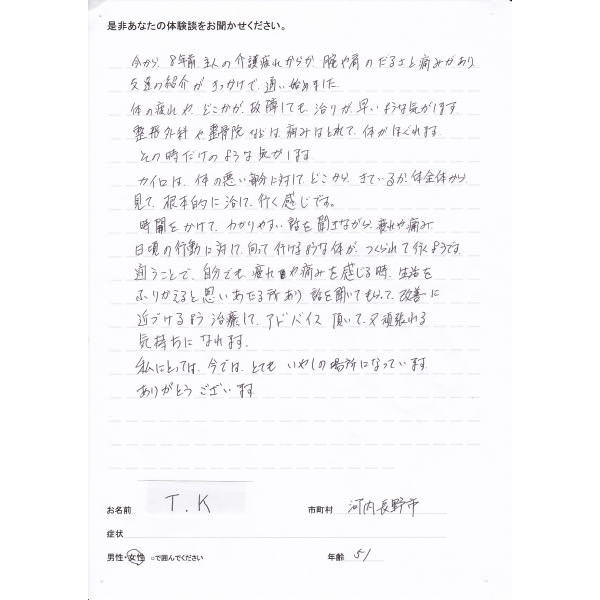 是非あなたの体験談をお聞かせください。
今から、8年前 主人の介護疲れからか 腕や肩のだるさと痛みがあり
友達の紹介が きっかけで、通い始めました
体の疲れや、どこかが、故障しても、治りが、早いような気がします
整形外科や整骨院などは、痛みはとれて、体がほぐれます
その時だけのような気がします
カイロは、体の悪い部分に対して、どこから、きているか体全体から
見て、根本的に治して行く感じです。
時間をかけて、わかりやすい話を聞きながら、疲れや痛み
日頃の行動に対して、向って行けるような体が、つくられて行くようです
通うことで、自分でも疲れや痛みを感じる時、生活を
ふりかえると思いあたる所あり 話を聞いてもらって、改善に
近づけるよう治療して、アドバイス頂いて、又頑張れる
気持ちになれます。
私にとっては、今では、とても いやしの場所になっています
ありがとうございます
お名前 T.K 市町村 河内長野市
症状
男性・女性 ○で囲んでください 年齢 51